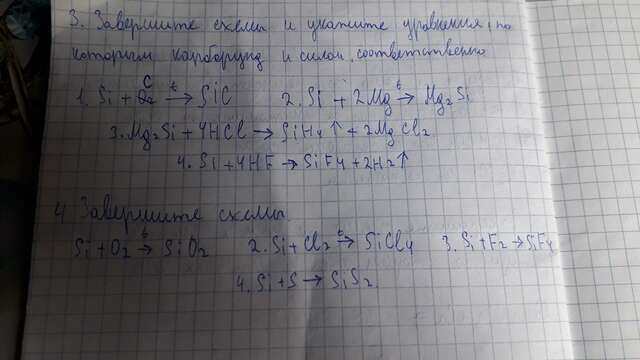 3. Завершите схемы и укажите уравнения, по
которым карборунд и силан соответственно
1. Si + C →t SiC 2. Si + 2Mg →t Mg2Si
3. Mg2Si + 4HCl → SiH4↑ + 2MgCl2
4. Si + 4HF → SiF4 + 2H2↑
4 Завершите схемы
Si + O2 →t SiO2 2. Si + Cl2 →t SiCl4 3. Si + F2 → SiF4
4. Si + S → SiS2.